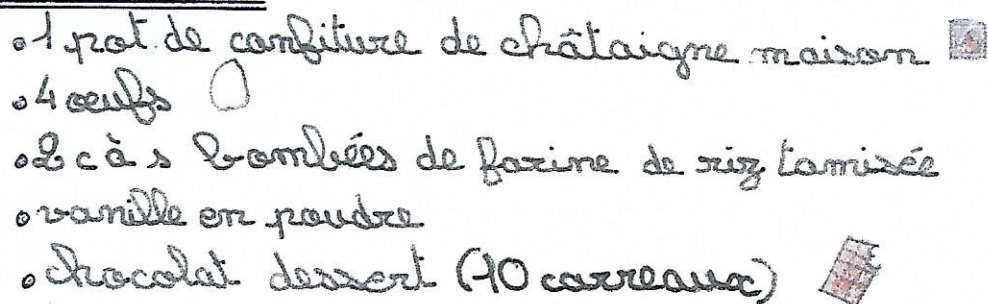 • 1 pot de confiture de châtaigne maison
• 4 œufs
• 2 c à s bombées de farine de riz tamisée
• vanille en poudre
• chocolat dessert (10 carreaux)